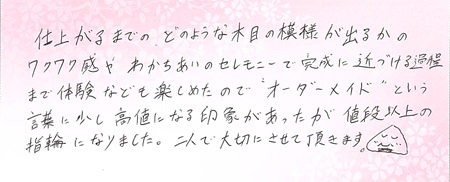 仕上がるまでの、どのような木目の模様が出るかの
ワクワク感や わかちあいのセレモニーで完成に近づける過程
まで体験なども楽しめたので“オーダーメイド”という
言葉に少し高値になる印象があったが 値段以上の
指輪になりました。二人で大切にさせて頂きます。